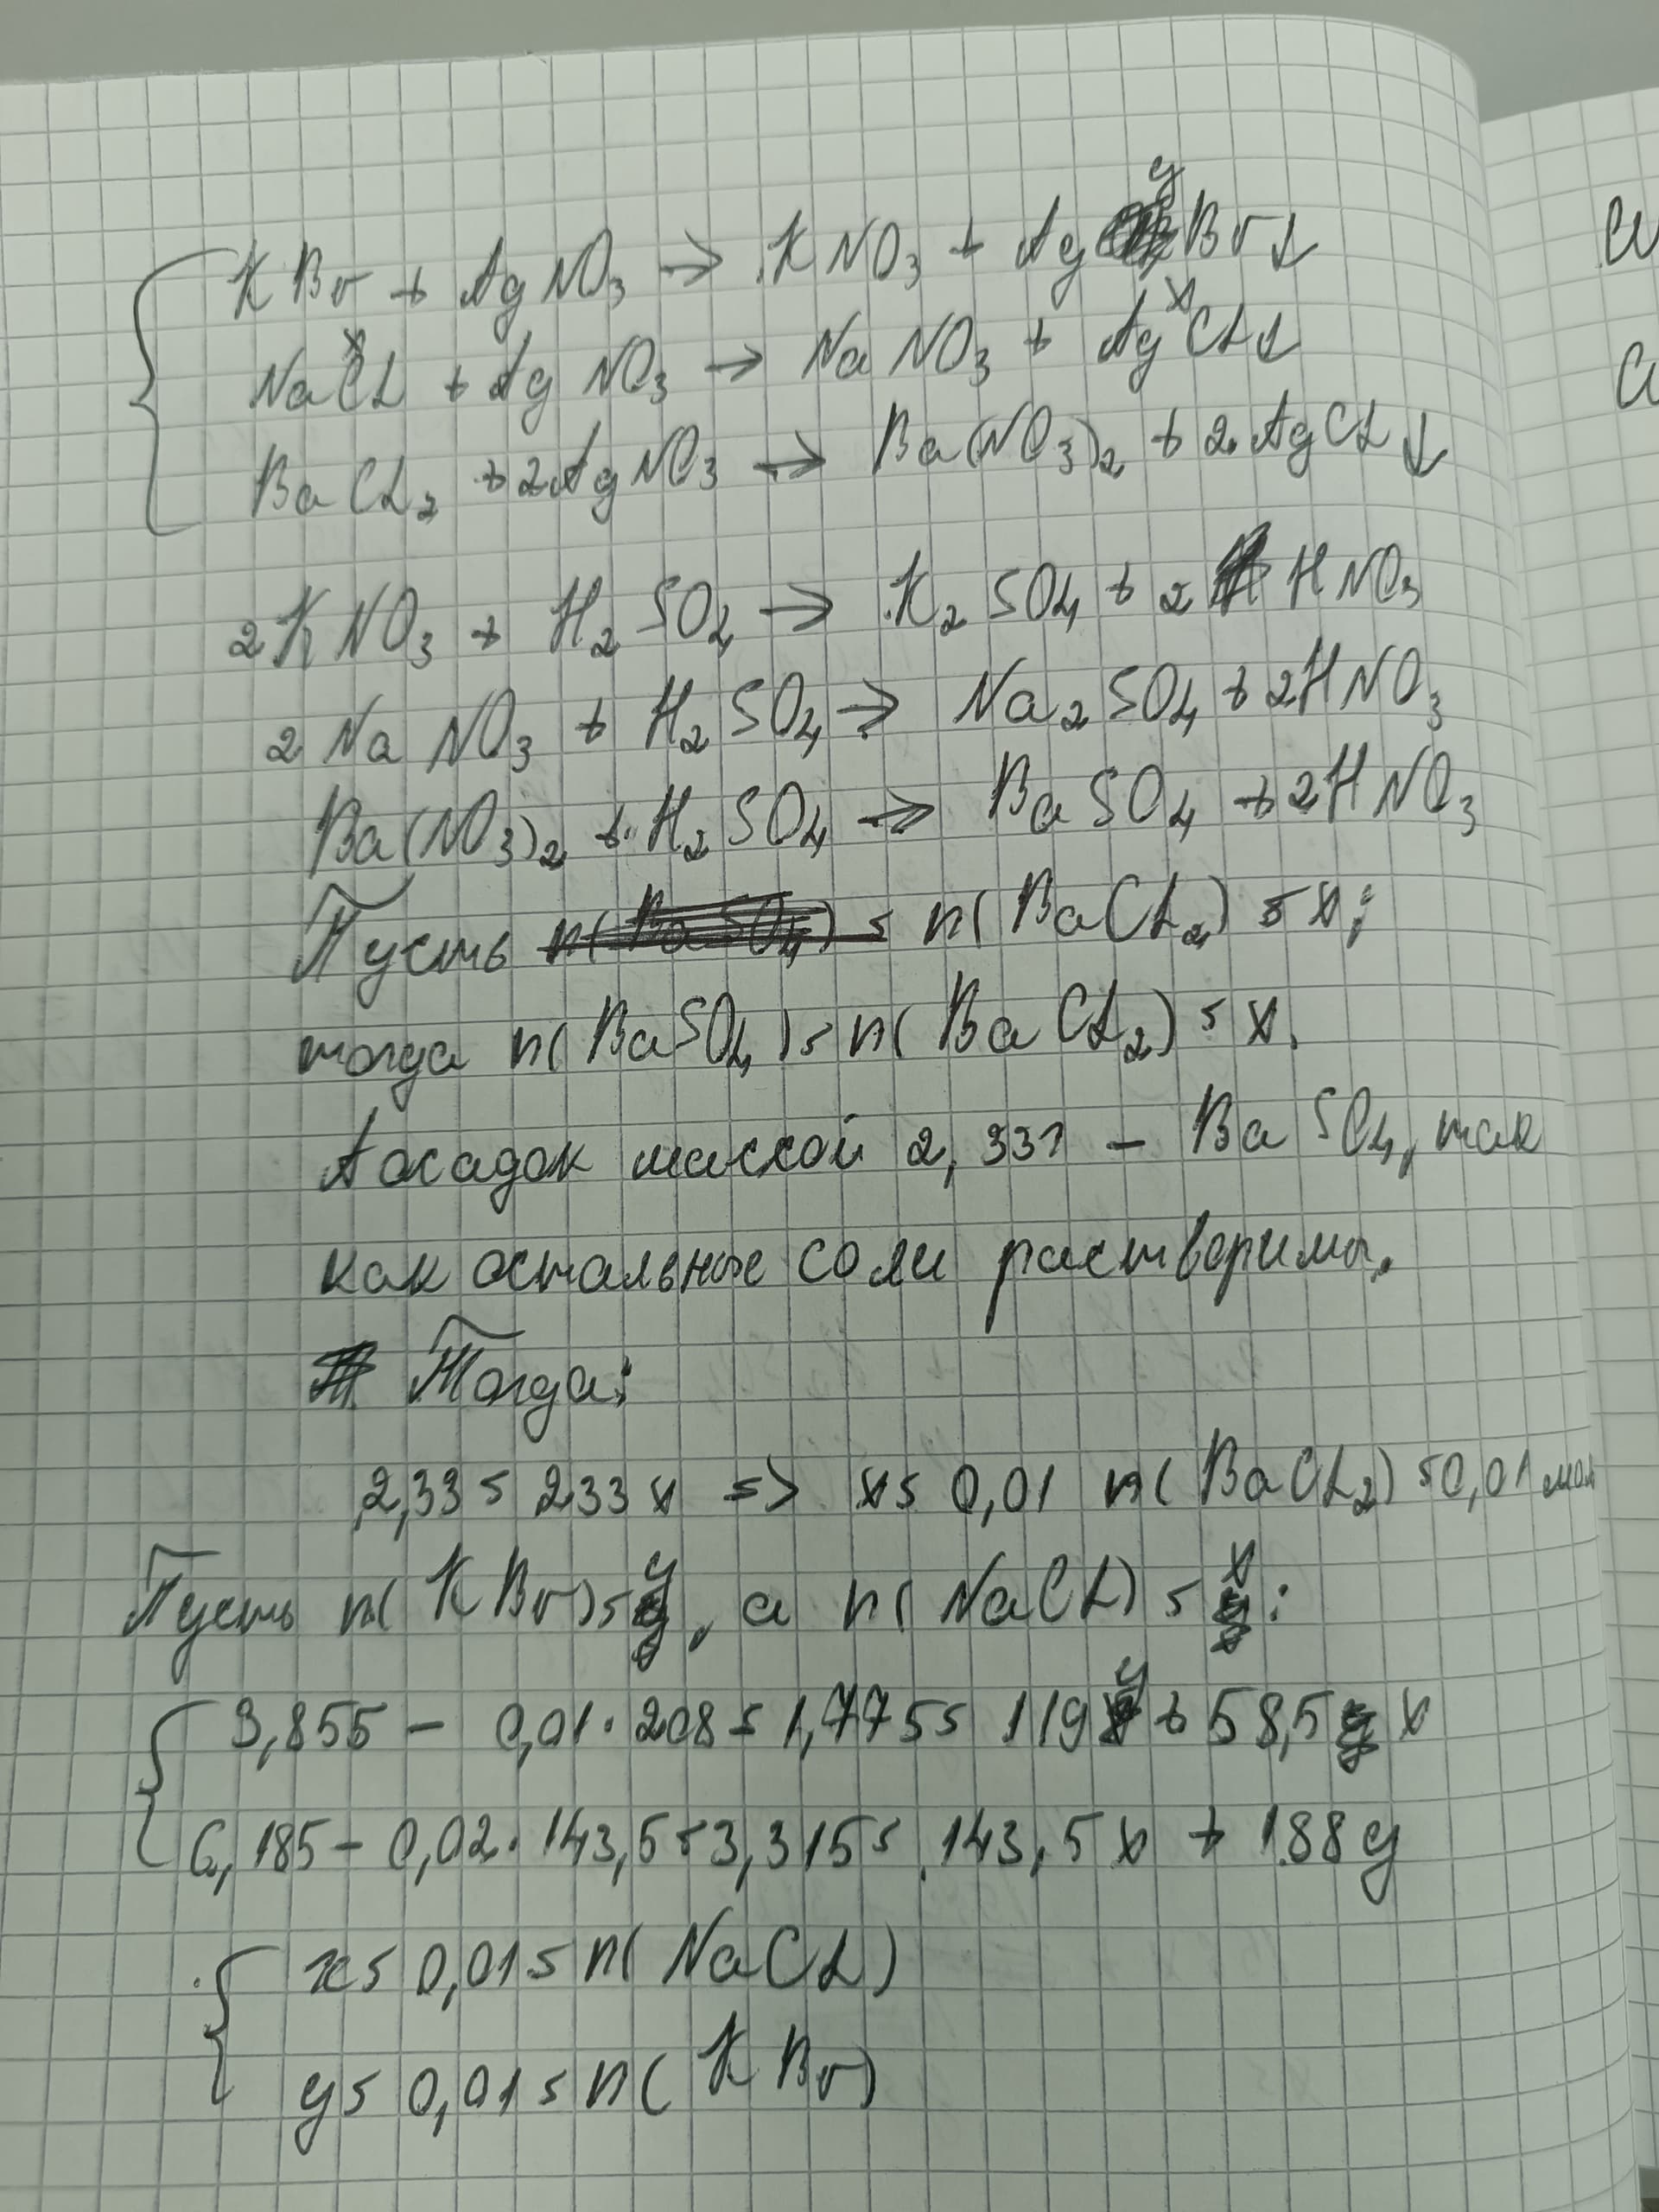 KBr + AgNO₃ → KNO₃ + AgBr↓
y
NaCl + AgNO₃ → NaNO₃ + AgCl↓
x x
BaCl₂ + 2AgNO₃ → Ba(NO₃)₂ + 2AgCl↓
2KNO₃ + H₂SO₄ → K₂SO₄ + 2HNO₃
2NaNO₃ + H₂SO₄ → Na₂SO₄ + 2HNO₃
Ba(NO₃)₂ + H₂SO₄ → BaSO₄ + 2HNO₃
Пусть n(BaCl₂) = x;
тогда n(BaSO₄) = n(BaCl₂) = x.
А осадок массой 2,33г – BaSO₄, так
как остальные соли растворимы.
Тогда:
2,33 = 233x => x = 0,01 n(BaCl₂) = 0,01 мол
Пусть n(KBr) = y, а n(NaCl) = x:
3,855 – 0,01·208 = 1,775 = 119y + 58,5x
6,185 – 0,02·143,5 = 3,315 = 143,5x + 188y
x = 0,01 = n(NaCl)
y = 0,01 = n(KBr)